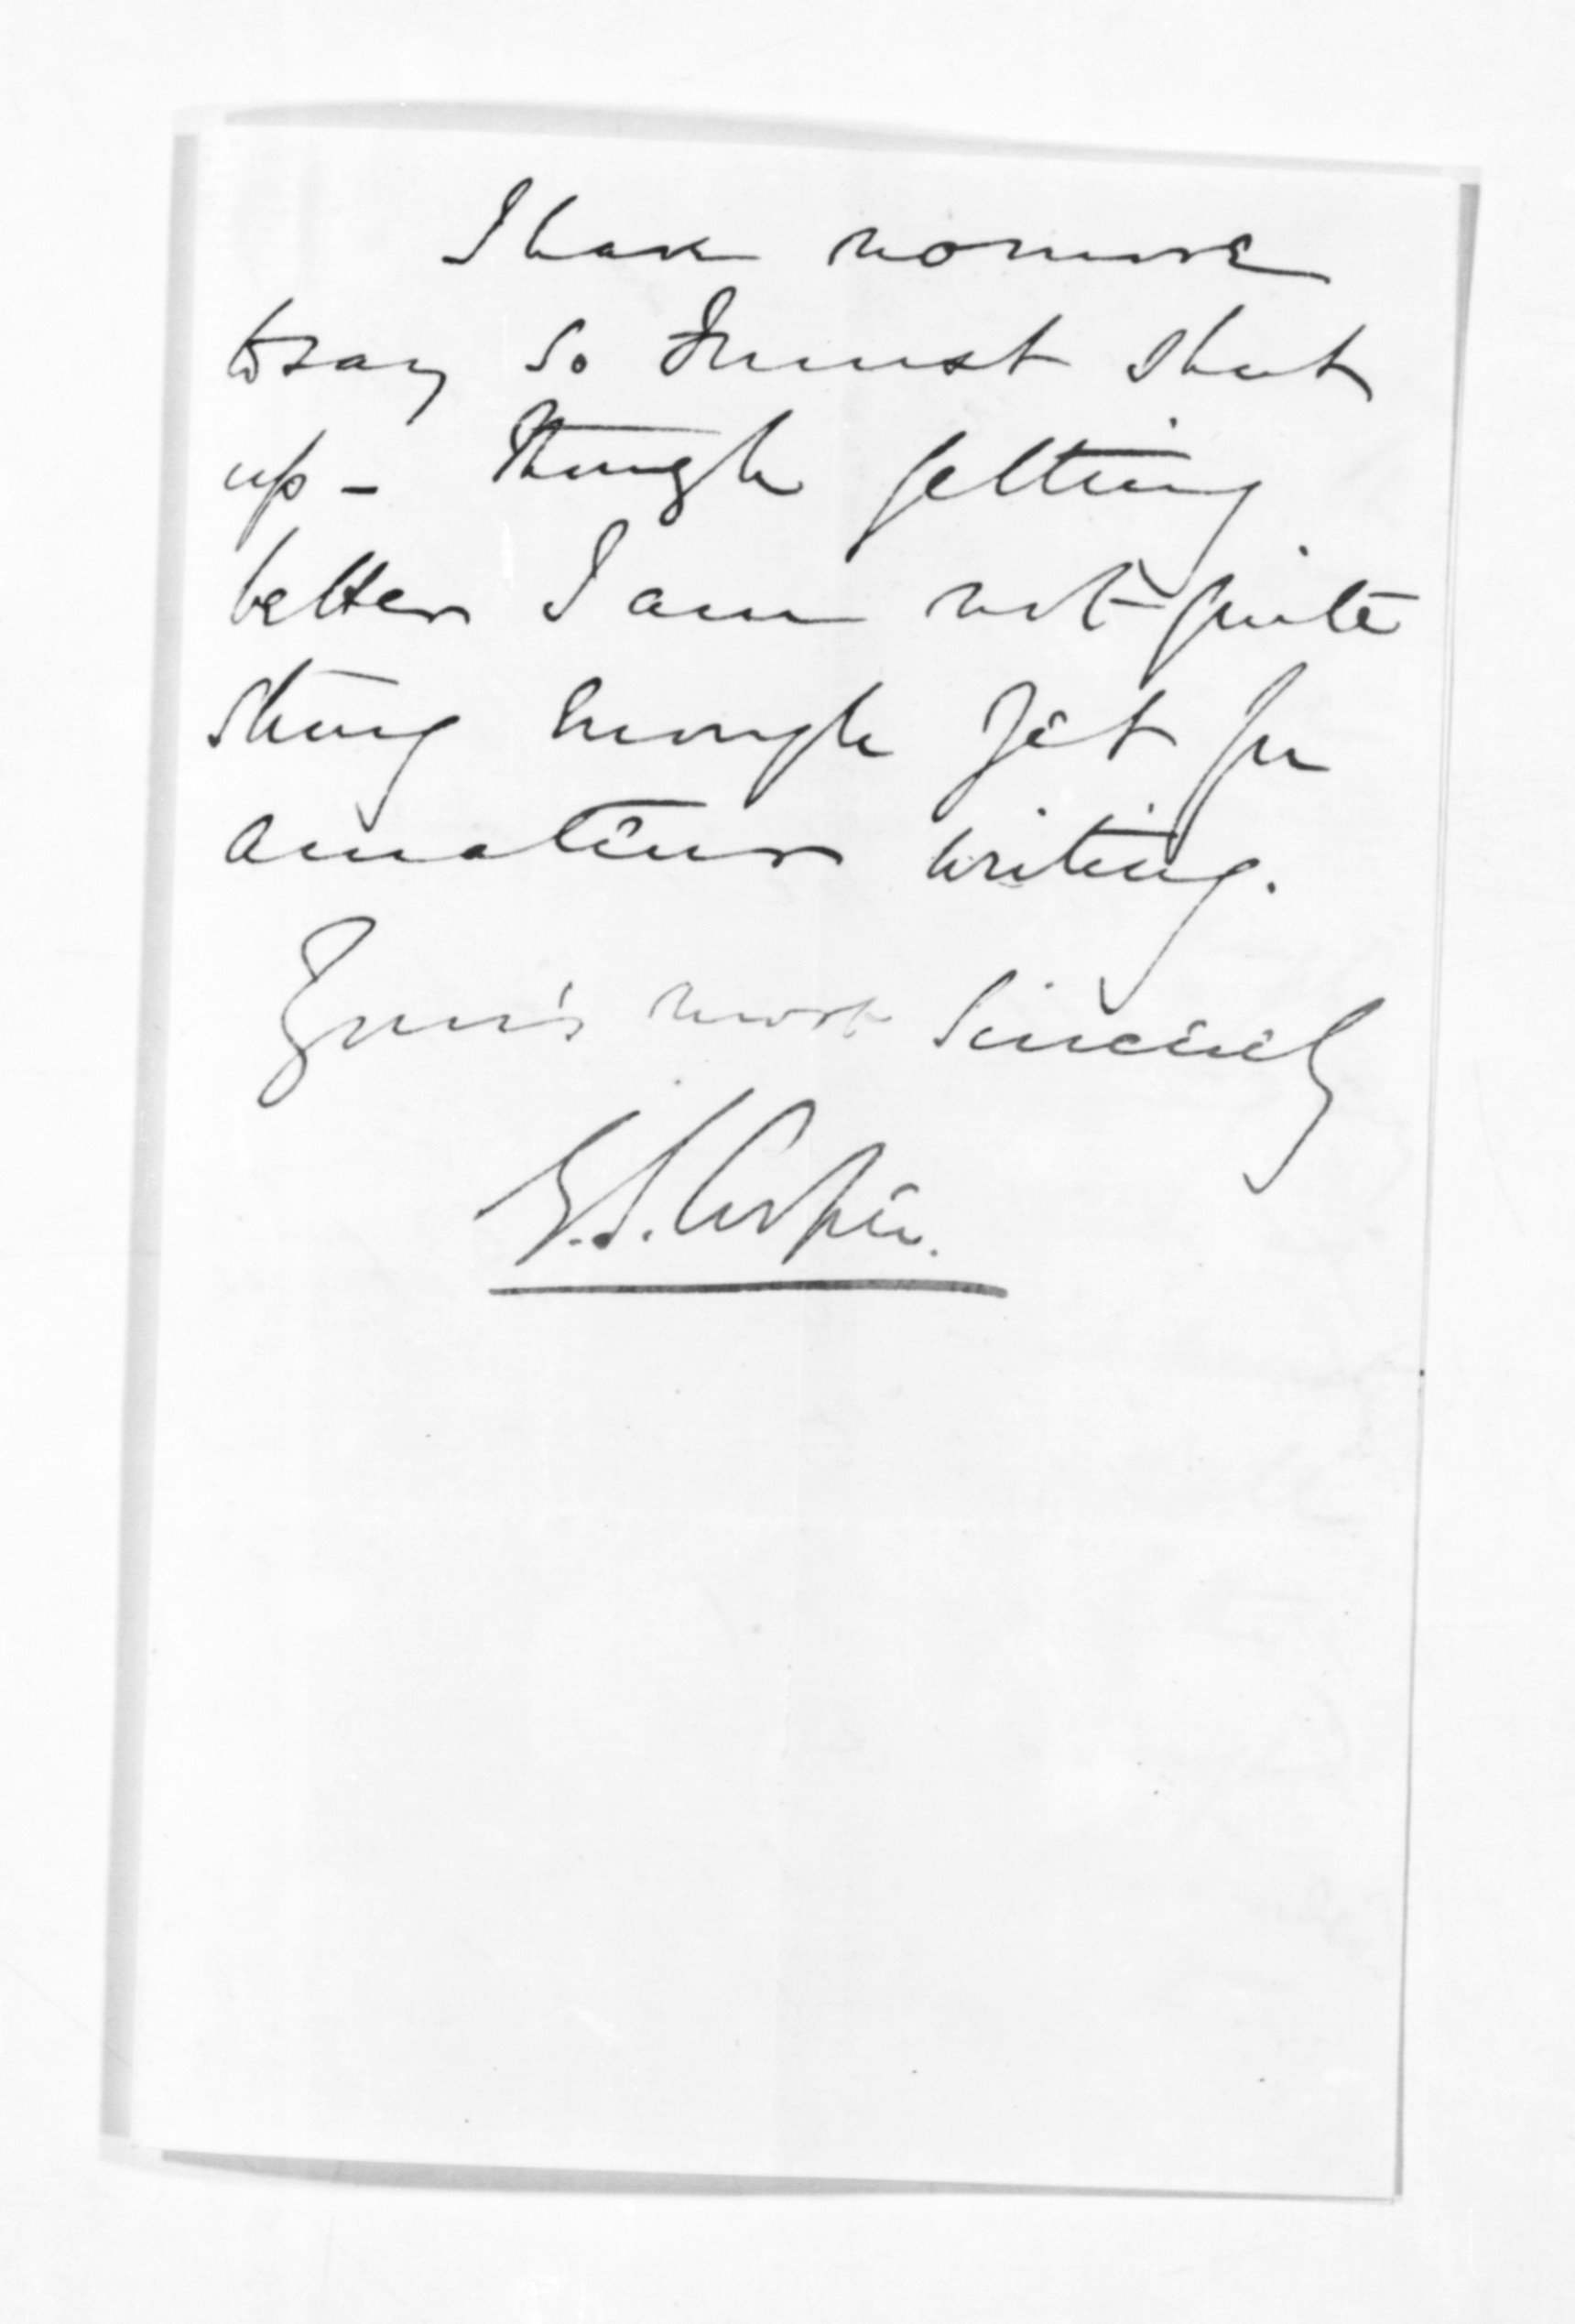 I have no more
to say so I must shut
up - Though getting
better I am not quite
strong enough yet for
amateur writing.
Your's most sincerely
G.S. Cooper.